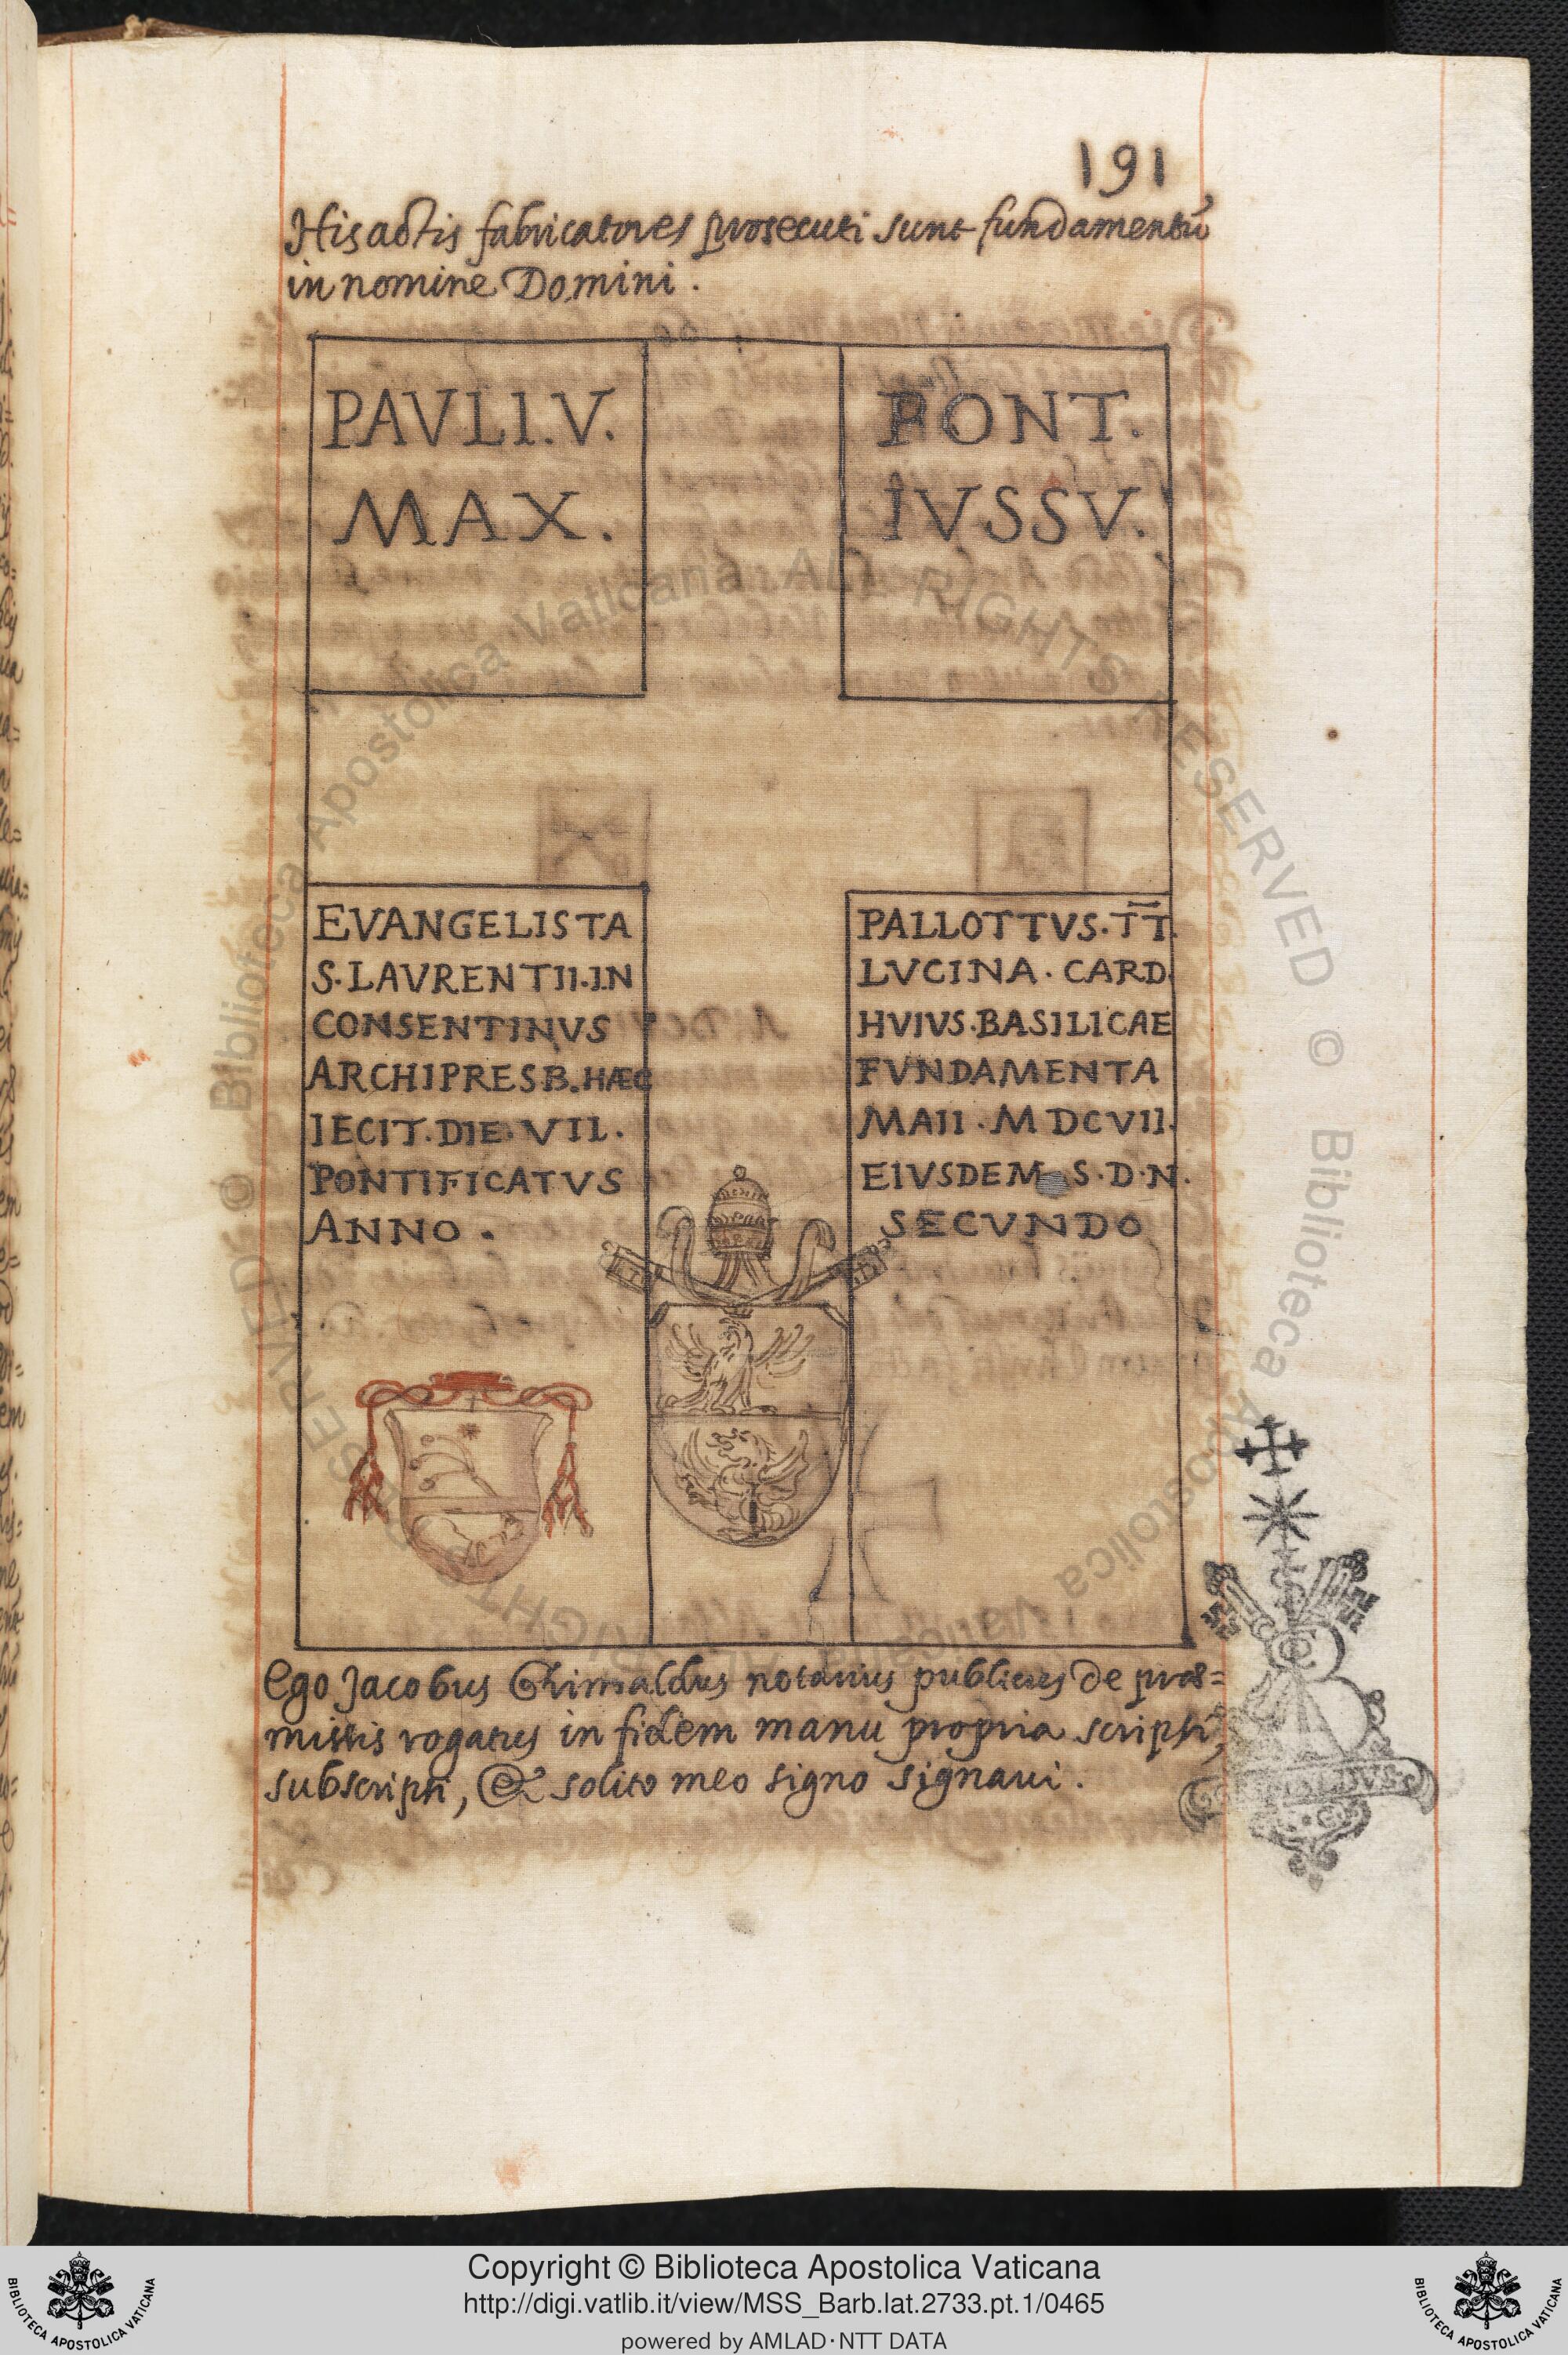 191
His actis fabricatores prosecuti sunt fundamentū
in nomine Domini.
PAVLI.V. PONT.
MAX. IVSSV.
EVANGELISTA PALLOTTVS.T̅T̅.
S.LAVRENTII.IN LVCINA.CARD.
CONSENTINVS HVIVS.BASILICAE
ARCHIPRESB.HÆC FVNDAMENTA
IECIT.DIE.VII. MAII.MDCVII.
PONTIFICATVS EIVSDEM S.D.N.
ANNO. SECVNDO
Ego Jacobus Grimaldus notarius publicus de præ=
missis rogatus in fidem manu propria scripsi,
subscripsi, & solito meo signo signavi.
Copyright © Biblioteca Apostolica Vaticana
http://digi.vatlib.it/view/MSS_Barb.lat.2733.pt.1/0465
powered by AMLAD·NTT DATA
BIBLIOTECA APOSTOLICA VATICANA
BIBLIOTECA APOSTOLICA VATICANA
© Biblioteca Apostolica Vaticana ALL RIGHTS RESERVED
© Biblioteca Apostolica Vaticana ALL RIGHTS RESERVED